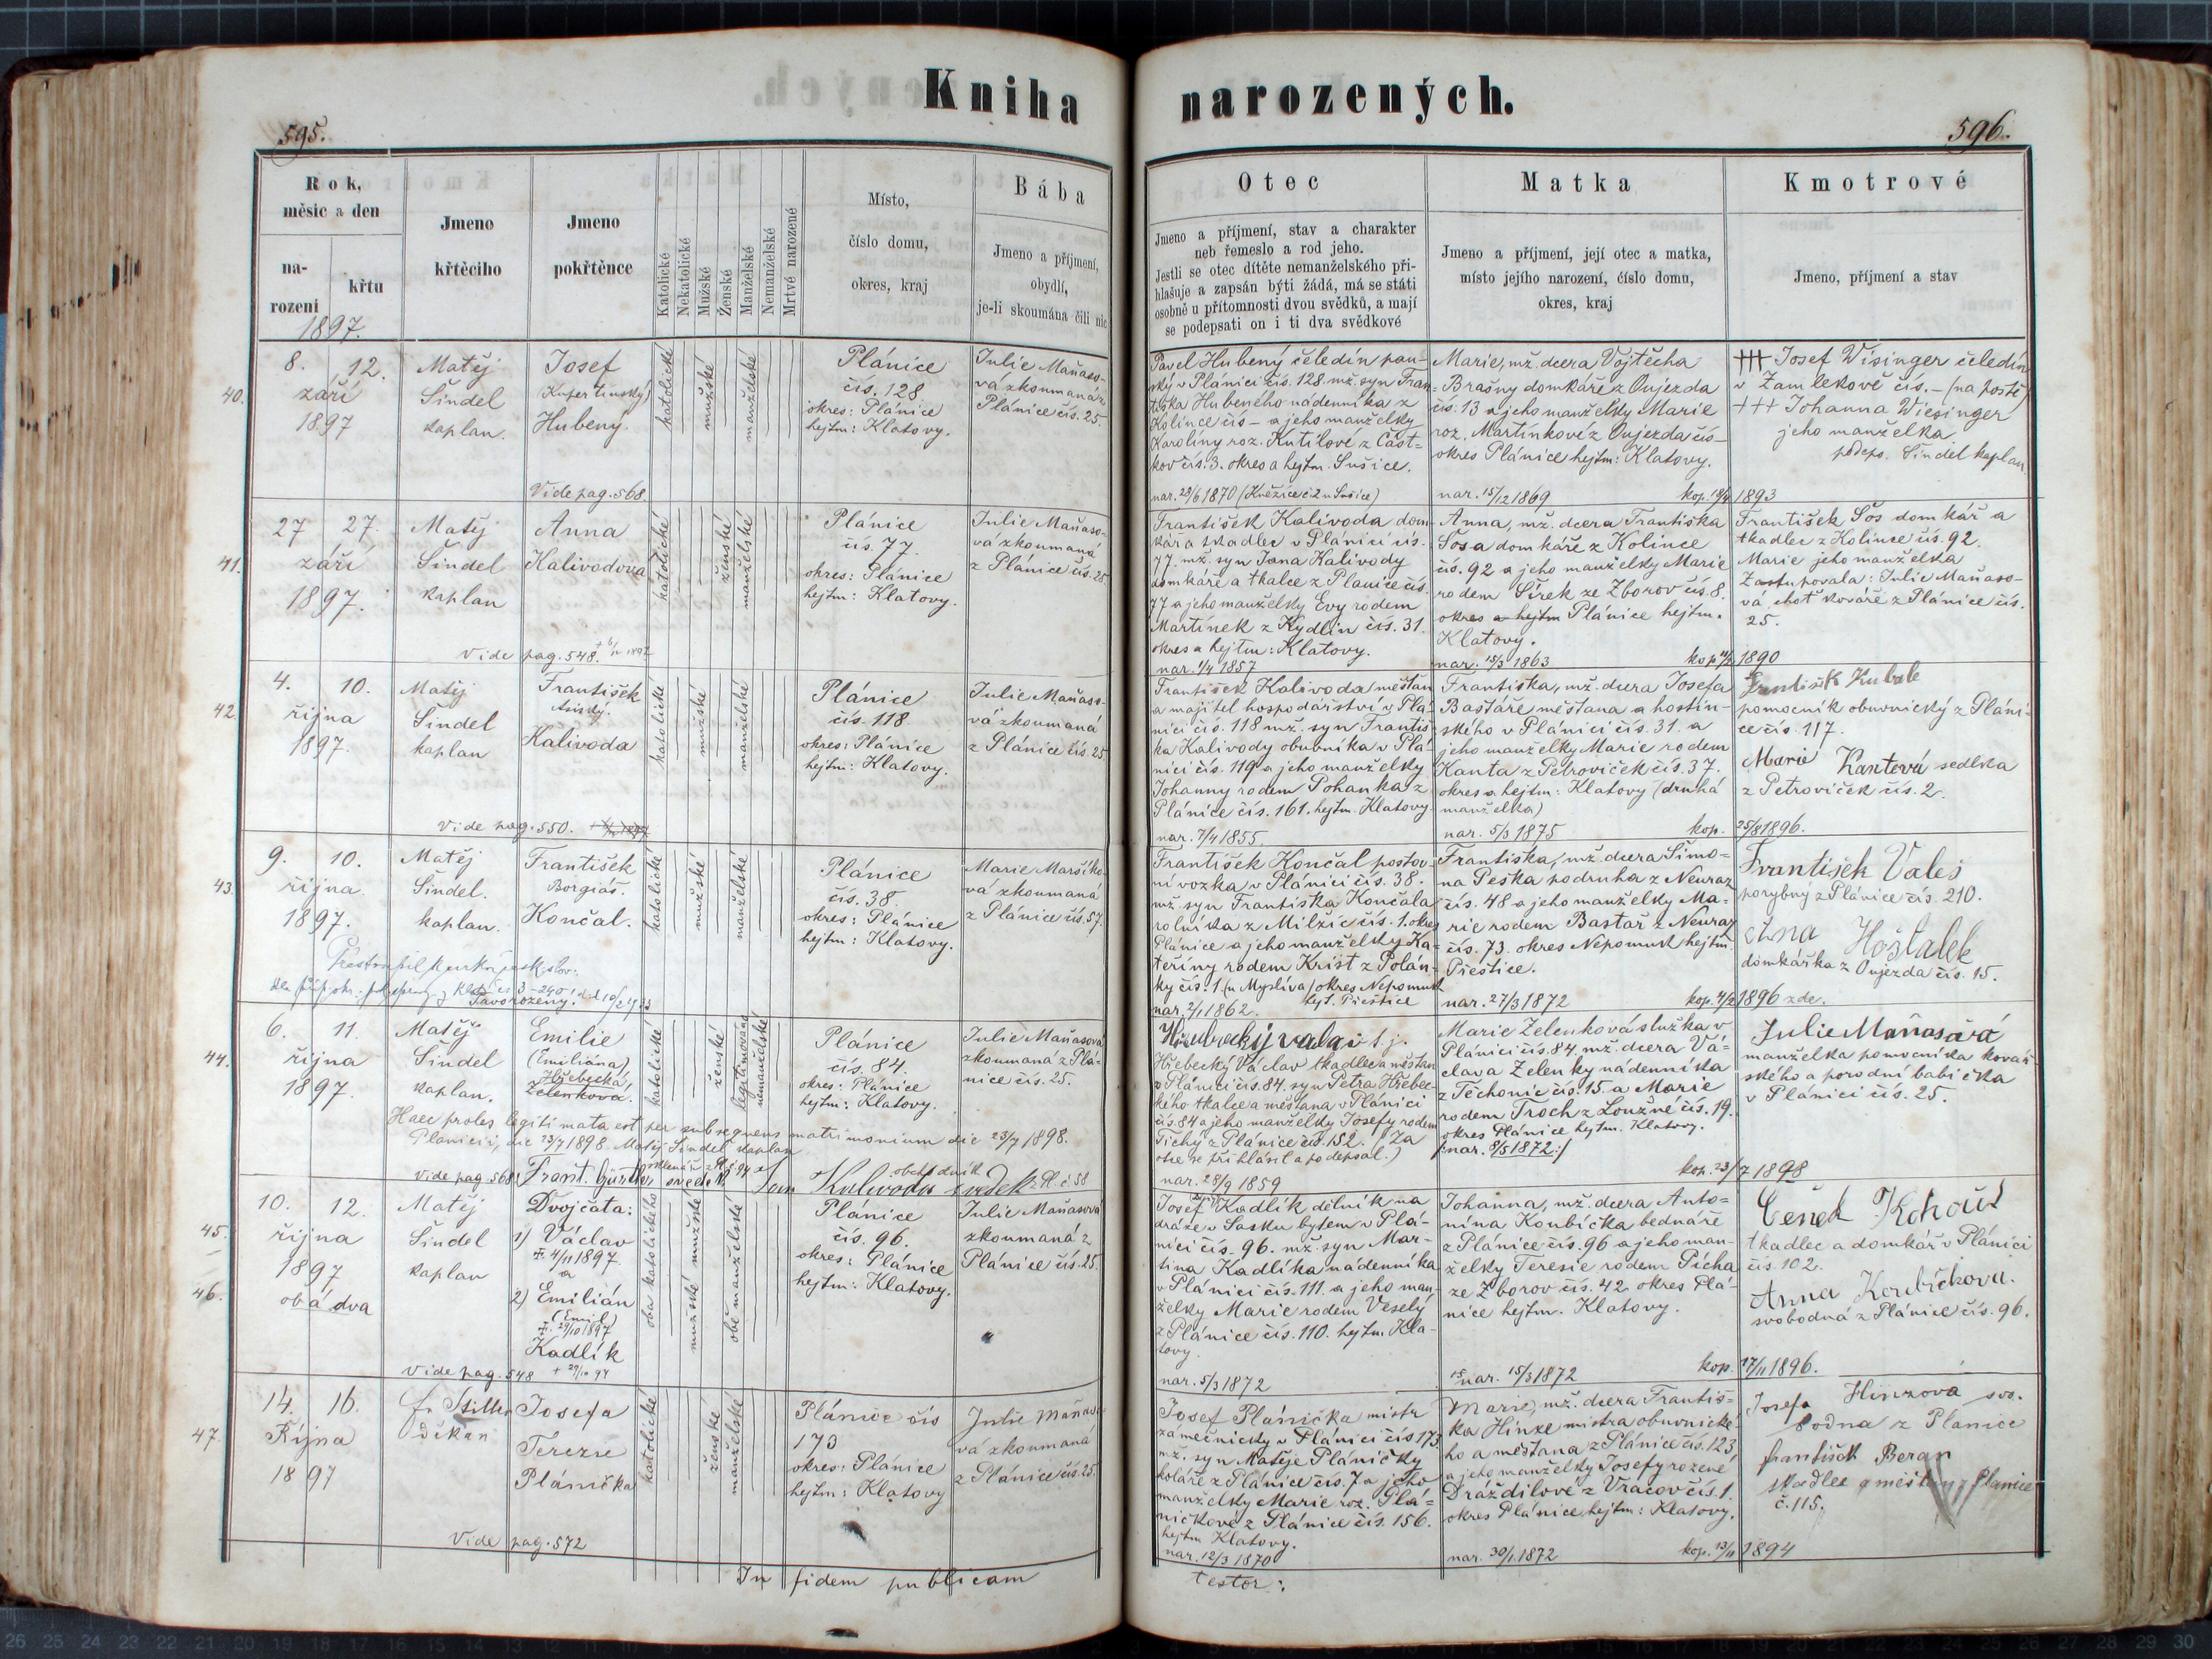 Kniha narozených.
595.
596.
Rok,
měsíc a den
na-
rození
křtu
1897.
Jmeno
křtěcího
Jmeno
pokřtěnce
Katolické
Nekatolické
Mužské
Ženské
Manželské
Nemanželské
Mrtvé narozené
Místo,
číslo domu,
okres, kraj
Bába
Jmeno a příjmení,
obydlí,
je-li skoumána čili nic
Otec
Jmeno a příjmení, stav a charakter
neb řemeslo a rod jeho.
Jestli se otec dítěte nemanželského při-
hlašuje a zapsán býti žádá, má se státi
osobně u přítomnosti dvou svědků, a mají
se podepsati on i ti dva svědkové
Matka
Jmeno a příjmení, její otec a matka,
místo jejího narození, číslo domu,
okres, kraj
Kmotrové
Jmeno, příjmení a stav
40.
8. 12.
září
1897
Matěj
Šindel
kaplan.
Josef
Kupertinský)
Hubený.
Vide pag. 568.
katolické
mužské
manželské
Plánice
čís. 128
okres: Plánice
hejtm: Klatovy.
Julie Maňaso-
vá zkoumaná z
Plánice čís. 25.
Pavel Hubený čeledín pan-
ský v Plánici čís. 128. mž. syn Fran-
tiška Hubeného nádenníka z
Kolince čís – a jeho manželky
Karoliny roz. Kutilové z Část-
kov čís. 3. okres a hejtm. Sušice.
nar. 23/6 1870 (Kněžice č 2 u Sušice)
Marie, mž. dcera Vojtěcha
Brašny domkáře z Oujezda
čís. 13 a jeho manželky Marie
roz. Martínkové z Oujezda čís –
okres Plánice hejtm: Klatovy.
nar. 15/12 1869
kop. 18/4 1893
+++ Josef Wisinger čeledín
v Zamlekově čís. – (na poště)
+++ Johanna Wiesinger
jeho manželka
podeps. Šindel kaplan
41.
27 27.
září
1897.
Matěj
Šindel
kaplan
Anna
Kalivodova
Vide pag. 548.
katolické
ženské
manželské
Plánice
čís. 77.
okres: Plánice
hejtm: Klatovy.
Julie Maňaso-
vá zkoumaná
z Plánice čís. 25
František Kalivoda dom-
kář a tkadlec v Plánici čís.
77. mž. syn Jana Kalivody
domkáře a tkalce z Planice čís.
77 a jeho manželky Evy rodem
Martínek z Kydlin čís. 31.
okres a hejtm: Klatovy.
nar. 1/4 1857
Anna, mž. dcera Františka
Šosa domkáře z Kolince
čís. 92 a jeho manželky Marie
rodem Šírek ze Zborov čís. 8.
okres a hejtm Plánice hejtm.
Klatovy.
nar. 15/3 1863
1890
František Šos domkář a
tkadlec z Kolince čís. 92.
Marie jeho manželka
Zastupovala: Julie Maňaso-
vá, choť kováře z Plánice čís.
25.
42.
4. 10.
října
1897.
Matěj
Šindel
kaplan
František
Assiský.
Kalivoda
Vide pag. 550.
katolické
mužské
manželské
Plánice
čís. 118.
okres: Plánice
hejtm: Klatovy.
Julie Maňaso-
vá zkoumaná
z Plánice čís. 25.
František Kalivoda měšťan
a majitel hospodářství v Plá-
nici čís. 118 mž. syn Františ-
ka Kalivody obuvníka v Plá-
nici čís. 119 a jeho manželky
Johanny rodem Pohanka z
Plánice čís. 161. hejtm. Klatovy.
nar. 7/4 1855
Františka, mž. dcera Josefa
Bastaře měšťana a hostin-
ského v Plánici čís. 31. a
jeho manželky Marie rodem
Kanta z Petroviček čís. 37.
okres a hejtm: Klatovy (druhá
manželka)
nar. 5/3 1875
kop. 25/8 1896.
František Kubale
pomocník obuvnický z Pláni-
ce čís. 117.
Marie Kantová sedlka
z Petroviček čís. 2.
43.
9. 10.
října.
1897.
Matěj
Šindel.
kaplan.
František
Borgiáš.
Končal.
katolické
mužské
manželské
Plánice
čís. 38.
okres: Plánice
hejtm: Klatovy.
Marie Maršíko-
vá zkoumaná
z Plánice čís. 57.
František Končal poštov-
ní vozka v Plánici čís. 38.
mž. syn Františka Končala
rolníka z Milžic čís. 1. okres
Plánice a jeho manželky Ka-
teřiny rodem Krist z Polán-
ky čís. 1. (u Myslíva) okres Nepomuk
hejt. Přeštice
nar. 2/1 1862.
Františka, mž. dcera Šimo-
na Peška podruha z Neuraz
čís. 48 a jeho manželky Ma-
rie rodem Bastař z Neuraz
čís. 73. okres Nepomuk hejtm.
Přeštice.
nar. 27/3 1872
1896 zde.
František Valeš
porybný z Plánice čís. 210.
Anna Hošťálek
domkářka z Oujezda čís. 15.
44.
6. 11.
října
1897.
Matěj
Šindel
kaplan.
Pavorozeny.
Emilie
(Emiliána)
Hřebecká!
Zelenková.
katolické
ženské
legitimováno
nemanželské
Plánice
čís. 84.
okres: Plánice
hejtm: Klatovy.
Julie Maňasová
zkoumaná z Plá-
nice čís. 25.
Haec proles legitimata est per subsequens matrimonium die 23/7 1898.
Planicii, die 23/7 1898. Matěj Šindel kaplan
Vide pag. 568
Jan Kalivoda obchodník svědek Pl. č. 58
t. j.
Hřebecký Václav tkadlec a měšťan
v Plánici čís. 84. syn Petra Hřebec-
kého tkalce a měšťana v Plánici
čís. 84 a jeho manželky Josefy rodem
Tichý z Plánice čís. 152. (Za
otce se přihlásil a podepsal.)
nar. 28/9 1859
Marie Zelenková služka v
Plánici čís. 84 mž. dcera Vá-
clava Zelenky nádenníka
z Těchonic čís. 15. a Marie
rodem Troch z Loužné čís. 19.
okres Plánice hejtm. Klatovy.
/:nar. 8/5 1872:/
kop. 23/7 1898
Julie Maňasová
manželka pomocníka kovář-
ského a porodní babička
v Plánici čís. 25.
45.
46.
10. 12.
října
1897
obá dva
Matěj
Šindel
kaplan
Dvojčata:
1) Václav
4/11 1897
a
2) Emilián
(Emil)
29/10 1897
Kadlík
Vide pag. 548 + 29/10 97
oba katolického
mužské mužské
obě manželské
Plánice
čís. 96.
okres: Plánice
hejtm: Klatovy.
Julie Maňasová
zkoumaná z
Plánice čís. 25.
Josef Kadlík dělník na
dráze v Sasku bytem v Plá-
nici čís. 96. mž. syn Mar-
tina Kadlíka nádenníka
v Plánici čís. 111. a jeho man-
želky Marie rodem Veselý
z Plánice čís. 110. hejtm. Kla-
tovy.
nar. 5/3 1872
Johanna, mž. dcera Anto-
nína Koubíčka bednáře
z Plánice čís. 96 a jeho man-
želky Teresie rodem Pícha
ze Zborov čís. 42. okres Plá-
nice hejtm. Klatovy.
nar. 15/3 1872
kop. 17/11 1896.
Čeněk Kohout
tkadlec a domkář v Plánici
čís. 102.
Anna Koubíčkova.
svobodná z Plánice čís. 96.
47.
14. 16.
Října
1897
děkan
Josefa
Terezie
Plánička
Vide pag. 572
katolické
ženské
manželské
Plánice čís
173
okres: Plánice
hejtm: Klatovy
Julie Maňaso-
vá zkoumaná
z Plánice čís. 25.
Josef Plánička mistr
zámečnický v Plánici čís 173
mž. syn Matěje Pláničky
koláře z Plánice čís. 7 a jeho
manželky Marie roz. Plá-
ničkové z Plánice čís. 156.
hejtm Klatovy.
nar. 12/3 1870
Marie, mž. dcera Františ-
ka Hinze mistra obuvnické-
ho a měšťana z Plánice čís. 123,
a jeho manželky Josefy rozené
Dráždilové z Vračov čís. 1.
okres Plánice hejtm: Klatovy.
nar. 30/1 1872
kop. 13/11 1894
Josefa Hinzová svo-
bodna z Planice
františek Beran
tkadlec a měšťan z Planice
č. 115.
In fidem publicam
testor: